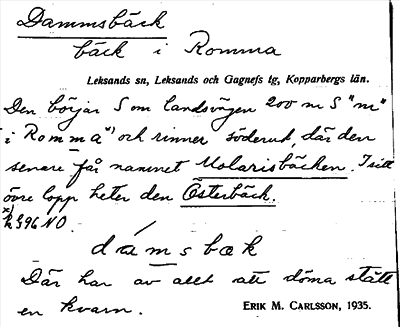 Dammsbäck
bäck i Romma
Leksands sn, Leksands och Gagnefs tg, Kopparbergs län.
Den börjar S om landsvägen 200 m S "m"
i Romma x) och rinner söderut, där den
senare får namnet Molarisbäcken. I sitt
övre lopp heter den Österbäck.
x) 396 NO.
damsbæk
Där har av allt att döma stått
en kvarn.
ERIK M. CARLSSON, 1935.